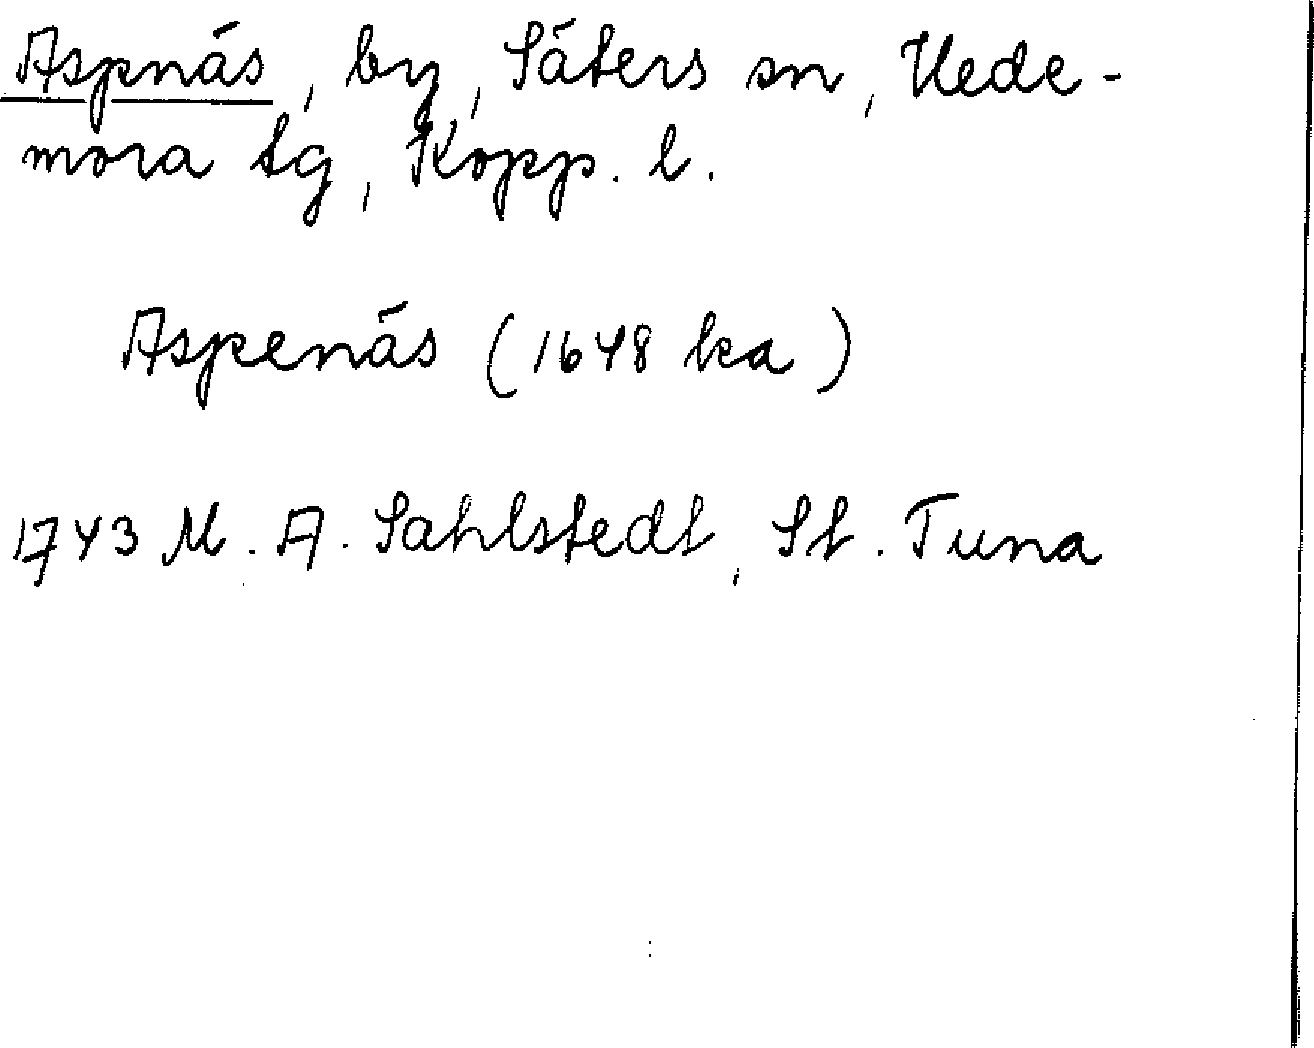 Aspnäs, by, Säters sn, Hede-
mora tg, Kopp. l.
Aspenäs (1648 ka)
1743 M. A. Sahlstedt, St. Tuna